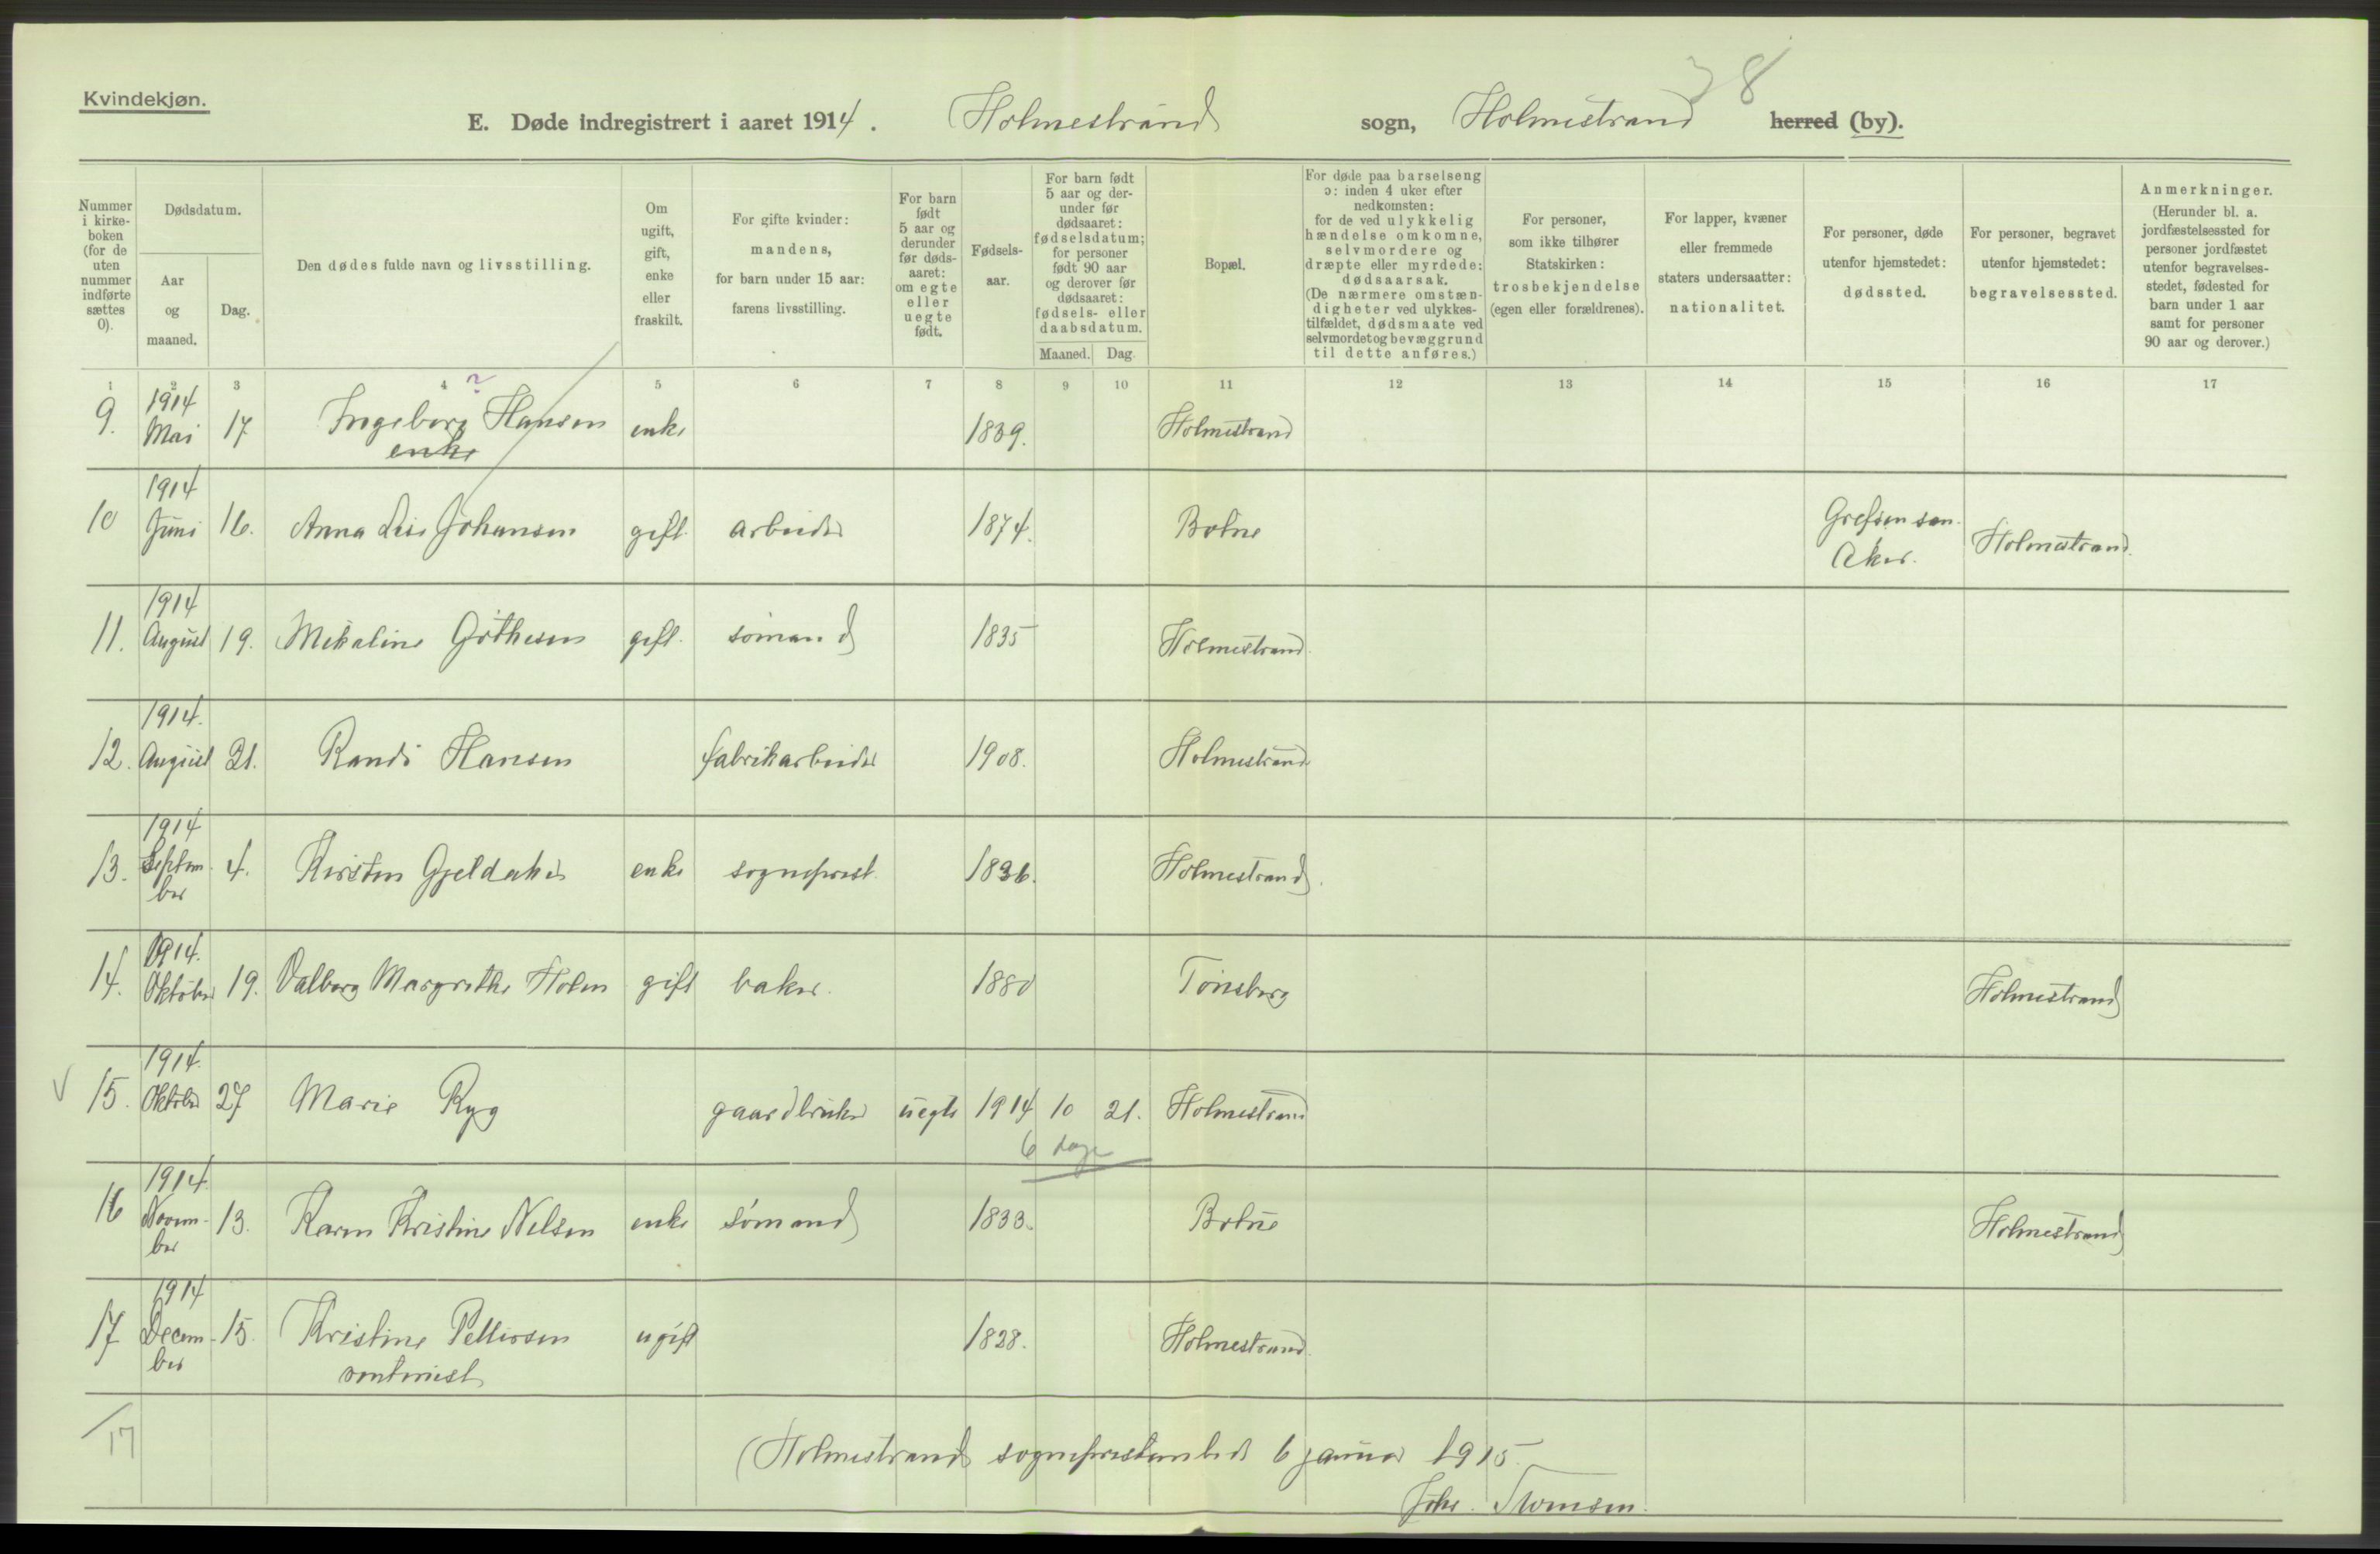 Kvindekjøn.
38
E. Døde indregistrert i aaret 1914. Holmestrand sogn, Holmestrand herred (by).
Nummer i kirke-boken (for de uten nummer indførte sættes 0).
Dødsdatum.
Aar og maaned.
Dag.
Den dødes fulde navn og livsstilling.
Om ugift, gift, enke eller fraskilt.
For gifte kvinder: mandens, for barn under 15 aar: farens livsstilling.
For barn født 5 aar og derunder før døds-aaret: om egte eller uegte født.
Fødsels-aar.
For barn født 5 aar og der-under før dødsaaret: fødselsdatum; for personer født 90 aar og derover før dødsaaret: fødsels- eller daabsdatum.
Maaned. Dag.
Bopæl.
For døde paa barselseng ɔ: inden 4 uker efter nedkomsten: for de ved ulykkelig hændelse omkomne, selvmordere og dræpte eller myrdede: dødsaarsak. (De nærmere omstæn-digheter ved ulykkes-tilfældet, dødsmaate ved selvmordet og bevæggrund til dette anføres.)
For personer, som ikke tilhører Statskirken: trosbekjendelse (egen eller forældrenes).
For lapper, kvæner eller fremmede staters undersaatter: nationalitet.
For personer, døde utenfor hjemstedet: dødssted.
For personer, begravet utenfor hjemstedet: begravelsessted.
Anmerkninger. (Herunder bl. a. jordfæstelsessted for personer jordfæstet utenfor begravelses-stedet, fødested for barn under 1 aar samt for personer 90 aar og derover.)
1 2 3 4 5 6 7 8 9 10 11 12 13 14 15 16 17
?
9. 1914 Mai 17 Ingeborg Hansen enke 1839. Holmestrand
enke
10 1914 Juni 16. Anna Lise Johansen gift arbeider 1874. Botne Grefsen san. Aker. Holmestrand.
11. 1914 August 19. Mekaline Gøthesen gift. sømand 1835 Holmestrand.
12. 1914. August 31. Randi Hansen fabrikarbeider 1908. Holmestrand.
13. 1914 Septem-ber 4. Kirsten Gjeldaker enke sogneprest 1836. Holmestrand.
14. 1914. Oktober 19. Valborg Margrethe Holm gift baker. 1880 Tønsberg Holmestrand
15. 1914. Oktober 27 Marie Ryg gaardbruker uegte 1914 10 21. Holmestrand
6 dage
16 1914. Novem-ber 13. Karen Kristine Nelsen enke sømand 1833. Botne Holmestrand
17 1914 Decem-ber 15. Kristine Pettersen ugift 1828. Holmestrand.
rentenist
17
Holmestrand sogneprestembede 6 januar 1915.
Johs.